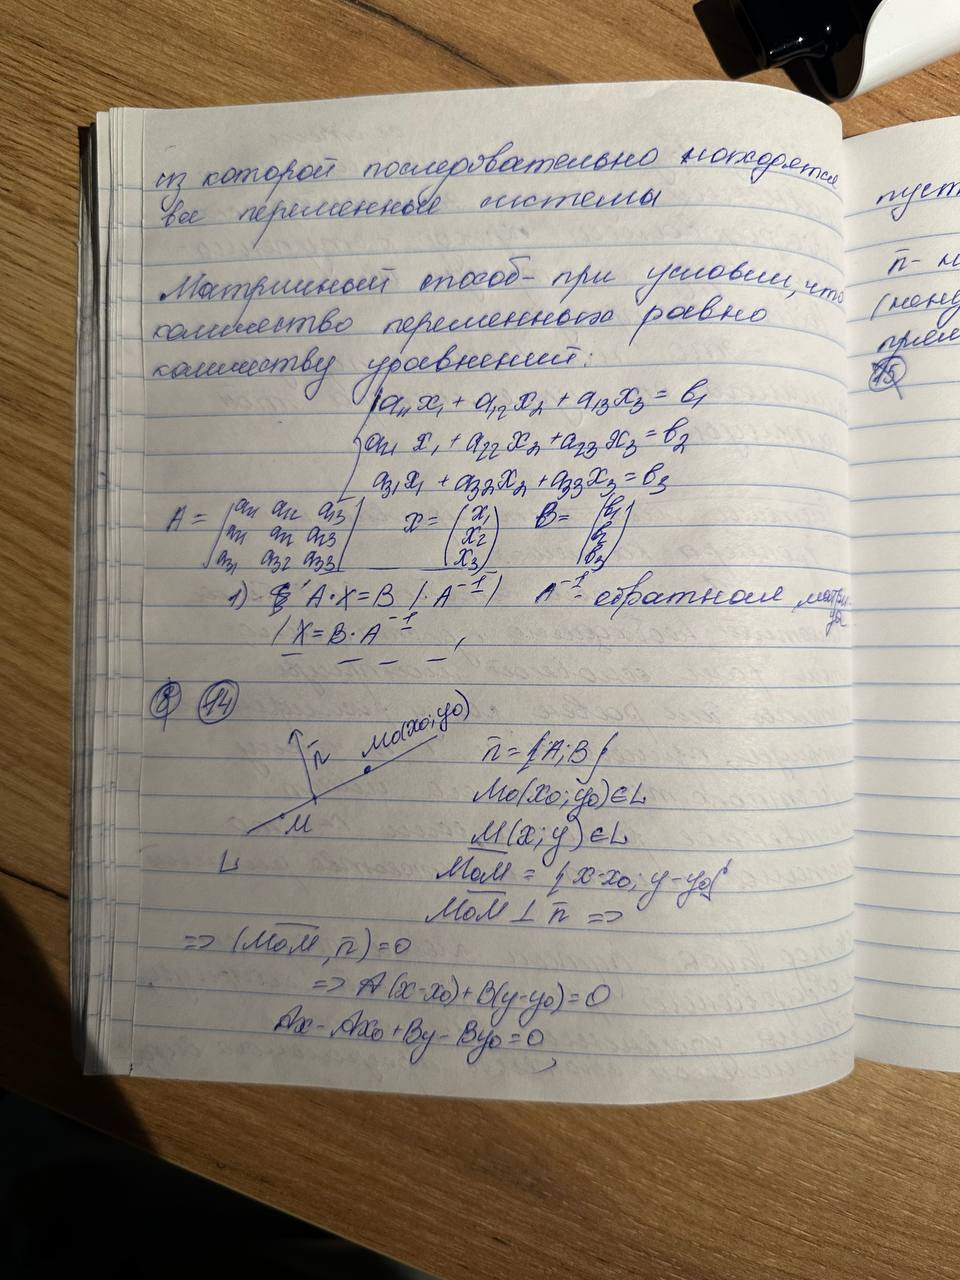 из которой последовательно находятся
все переменные системы
Матричный способ - при условии, что
количество переменных равно
количеству уравнений:
a₁₁x₁ + a₁₂x₂ + a₁₃x₃ = b₁
a₂₁x₁ + a₂₂x₂ + a₂₃x₃ = b₂
a₃₁x₁ + a₃₂x₂ + a₃₃x₃ = b₃
A = (a₁₁ a₁₂ a₁₃ X = (x₁ B = (b₁
a₂₁ a₂₂ a₂₃ x₂ b₂
a₃₁ a₃₂ a₃₃) x₃) b₃)
1) A·X=B |·A⁻¹| A⁻¹ - обратная матри-
ца
X=B·A⁻¹
14
n̄ M₀(x₀; y₀)
n̄ = {A; B}
M₀(x₀; y₀)∈L
M
M(x; y)∈L
L
M₀M = {x-x₀; y-y₀}
M₀M ⊥ n̄ =>
=> (M₀M, n̄)=0
=> A(x-x₀)+B(y-y₀)=0
Ax-Ax₀+By-By₀=0
пуст
n̄-
прям
15